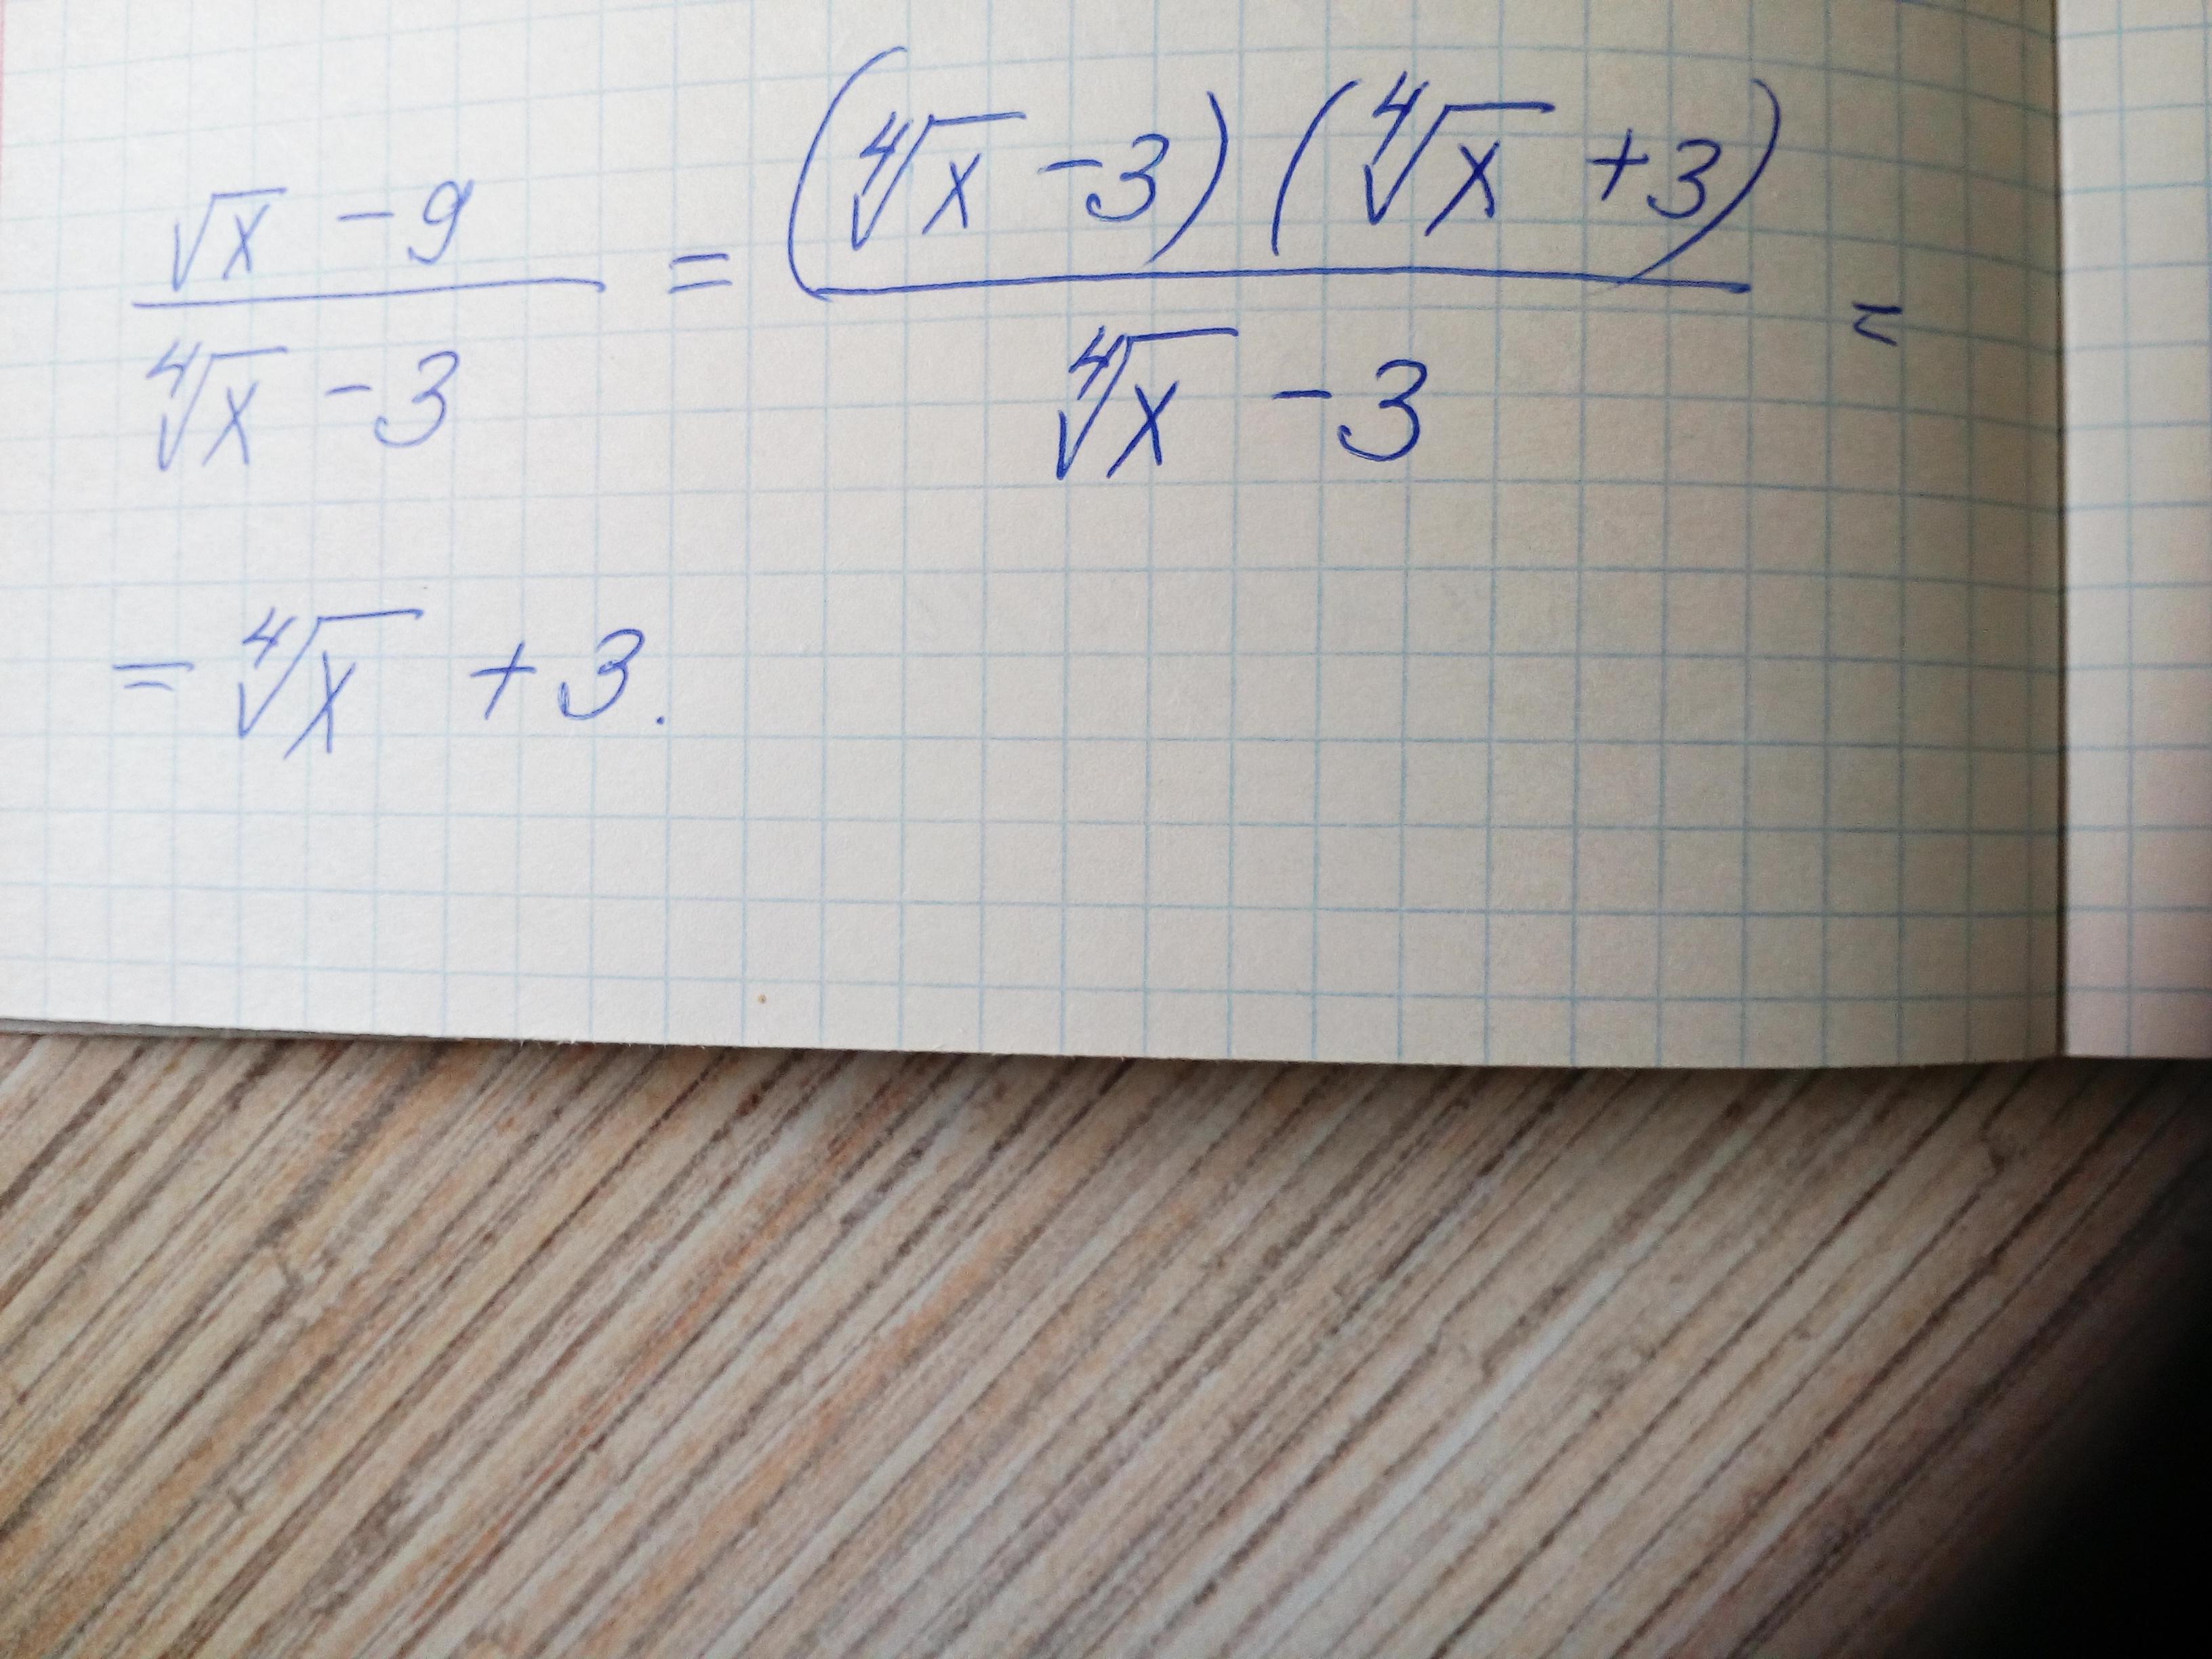 (√x − 9)/(⁴√x − 3) = ((⁴√x − 3)(⁴√x + 3))/(⁴√x − 3) =
= ⁴√x + 3.